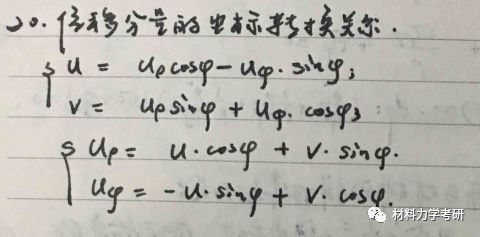 20. 位移分量的坐标转换关系.
u = uρcosφ - uφ·sinφ;
v = uρsinφ + uφ·cosφ;
uρ = u·cosφ + v·sinφ.
uφ = -u·sinφ + v·cosφ.
材料力学考研